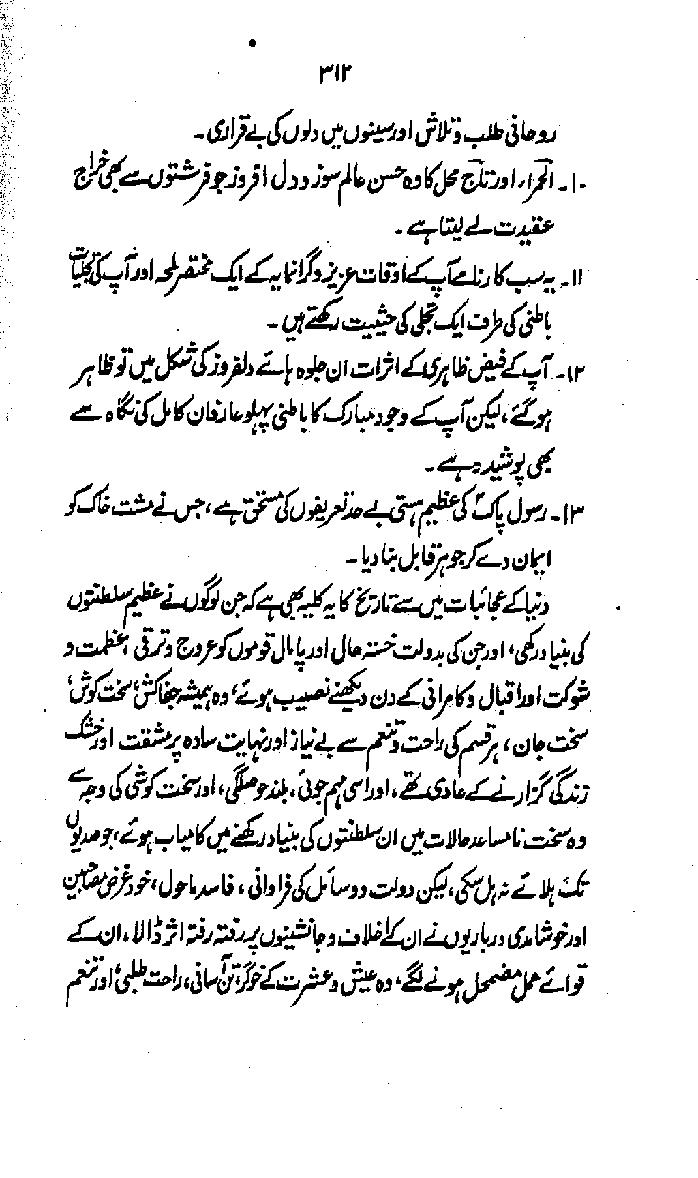 ۳۱۲
روحانی طلب و تلاش اور سینوں میں دلوں کی بے قراری۔
۱۰۔ الحمراء، اور تاج محل کا وہ حسن عالم سوز و دل افروز جو فرشتوں سے بھی خراج
عقیدت لے لیتا ہے۔
۱۱۔ یہ سب کارنامے آپ کے اوقات عزیز و گرانمایہ کے ایک مختصر لمحہ اور آپ کی تجلیات
باطنی کی طرف ایک تجلی کی حیثیت رکھتے ہیں۔
۱۲۔ آپ کے فیض ظاہری کے اثرات ان جلوہ ہائے دلفروز کی شکل میں تو ظاہر
ہو گئے، لیکن آپ کے وجود مبارک کا باطنی پہلو عارفان کامل کی نگاہ سے
بھی پوشیدہ ہے۔
۱۳۔ رسول پاکؐ کی عظیم ہستی بے حد تعریفوں کی مستحق ہے، جس نے مشت خاک کو
ایمان دے کر جوہر قابل بنا دیا۔
دنیا کے عجائبات میں سے تاریخ کا یہ کلیہ بھی ہے کہ جن لوگوں نے عظیم سلطنتوں
کی بنیاد رکھی، اور جن کی بدولت خستہ حال اور پامال قوموں کو عروج و ترقی، عظمت و
شوکت اور اقبال و کامرانی کے دن دیکھنے نصیب ہوئے، وہ ہمیشہ جفاکش، سخت کوش،
سخت جان، ہر قسم کی راحت و تنعم سے بے نیاز اور نہایت سادہ پر مشقت اور خشک
زندگی گزارنے کے عادی تھے، اور اسی مہم جوئی، بلند حوصلگی، اور سخت کوشی کی وجہ سے
وہ سخت نامساعد حالات میں ان سلطنتوں کی بنیاد رکھنے میں کامیاب ہوئے، جو صدیوں
تک ہلائے نہ ہل سکی، لیکن دولت و وسائل کی فراوانی، فاسد ماحول، خود غرض مصاحبین
اور خوشامدی درباریوں نے ان کے اخلاف و جانشینوں پر رفتہ رفتہ اثر ڈالا، ان کے
قوائے عمل مضمحل ہونے لگے، وہ عیش و عشرت کے خوگر، تن آسانی، راحت طلبی، اور تنعم